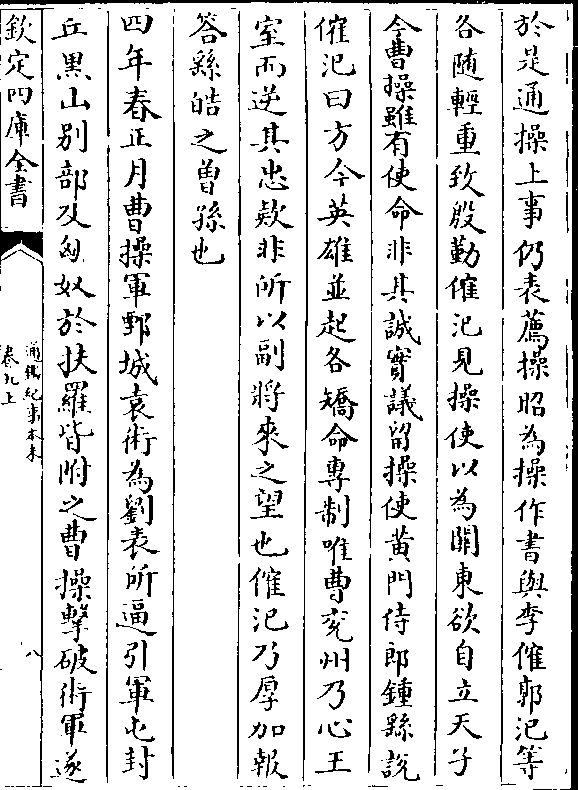 於是通操上事仍表薦操昭為操作書與李傕郭汜等
各随輕重致殷勤傕汜見操使以為關東欲自立天子
今曹操雖有使命非其誠實議留操使黄門侍郎鍾繇説
傕汜曰方今英雄並起各矯命專制唯曹兖州乃心王
室而逆其忠欵非所以副將來之望也傕汜乃厚加報
答繇皓之曽孫也
四年春正月曹操軍鄄城袁術為劉表所逼引軍屯封
丘黒山别部及匈奴於扶羅皆附之曹操擊破術軍遂
欽定四庫全書
通鑑紀事本末
卷九上
八